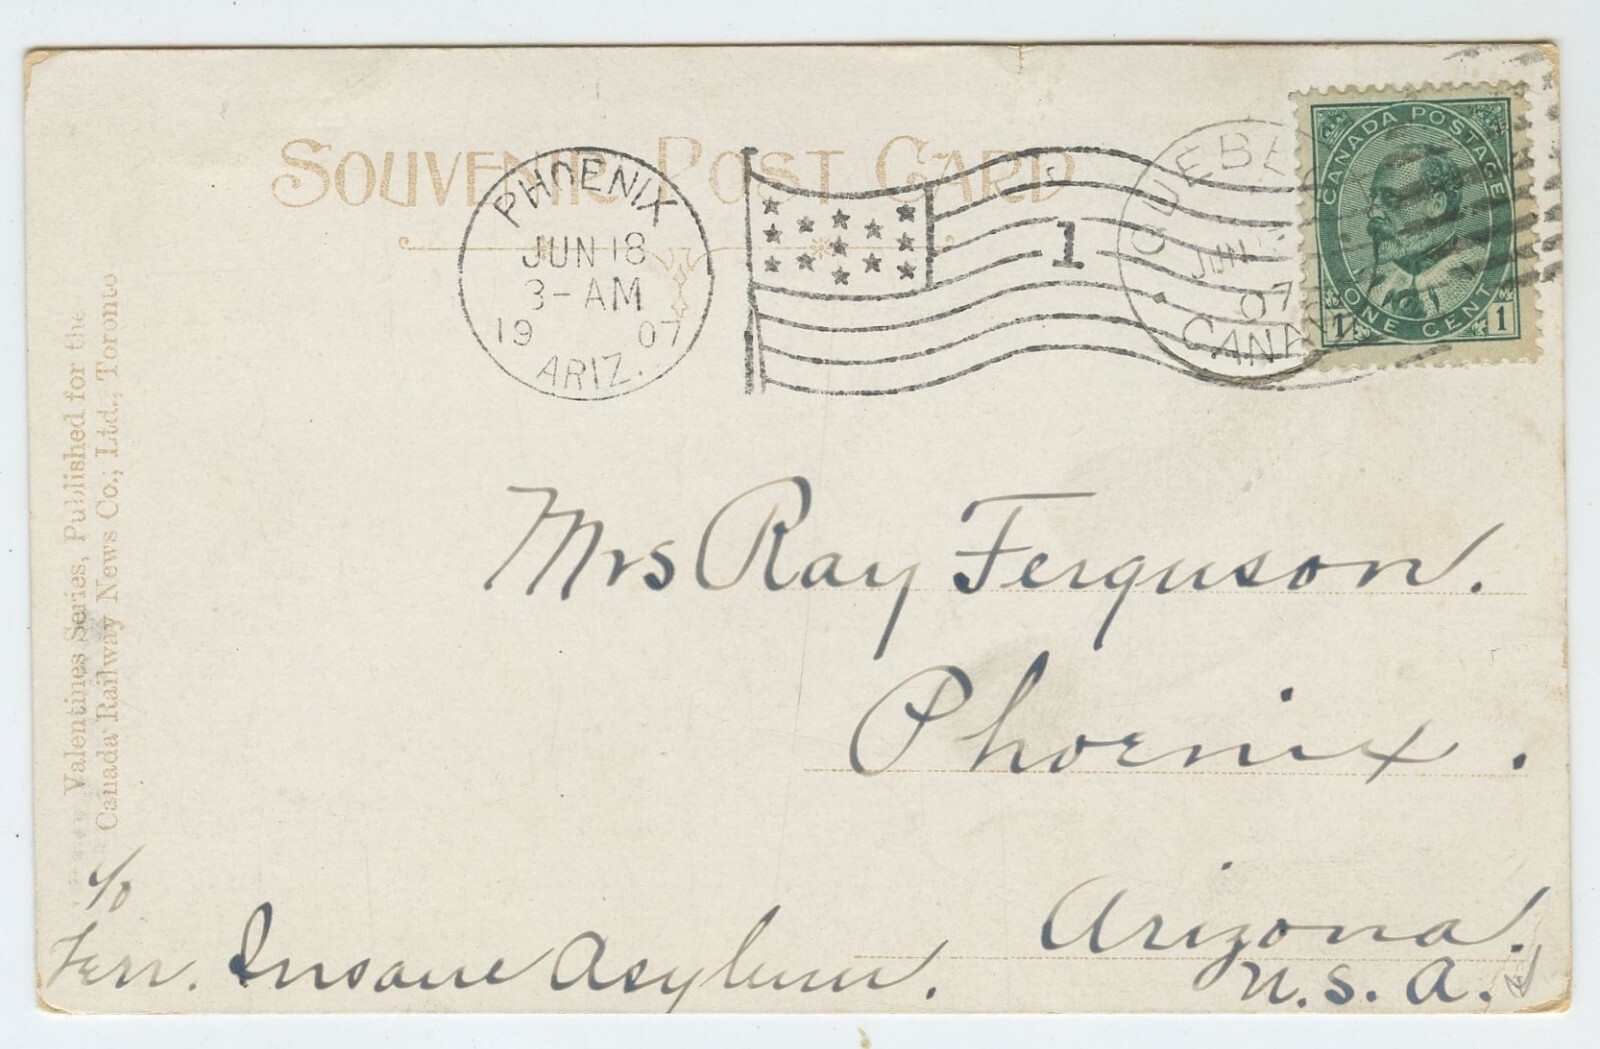 SOUVENIR POST CARD
PHOENIX
JUN 18
3-AM
19 07
ARIZ.
1
QUEBE
JUN
07
CANA
CANADA POSTAGE
1 ONE CENT 1
Valentines Series, Published for the
Canada Railway News Co., Ltd., Toronto
Mrs Ray Ferguson.
Phoenix.
Arizona.
U.S.A.
c/o
Terr. Insane Asylum.